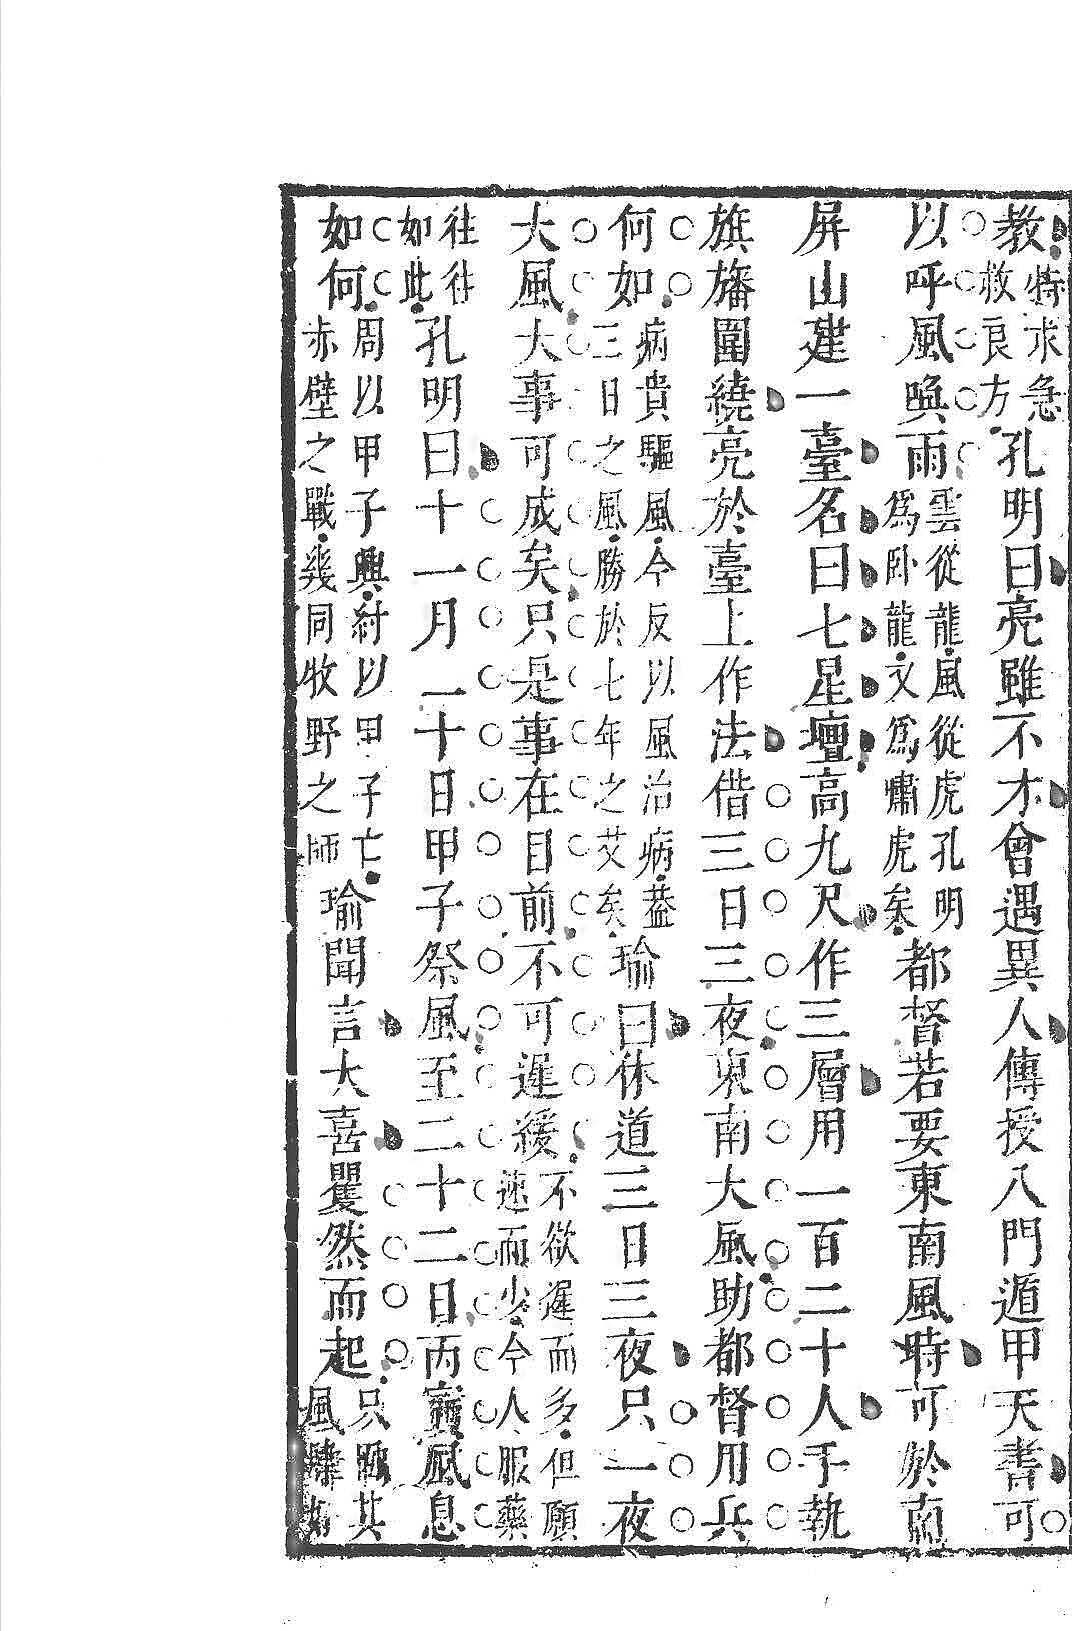 教特求急救良方孔明曰亮雖不才曾遇異人傳授八門遁甲天書可
以呼風喚雨雲從龍風從虎孔明爲臥龍又爲嘯虎矣都督若要東南風時可於南
屏山建一臺名曰七星壇高九尺作三層用一百二十人手執
旗旛圍繞亮於臺上作法借三日三夜東南大風助都督用兵
何如病貴驅風今反以風治病葢三日之風勝於七年之艾矣瑜曰休道三日三夜只一夜
大風大事可成矣只是事在目前不可遲緩不欲遲而多但願速而少今人服藥
往往如此孔明曰十一月二十日甲子祭風至二十二日丙寅風息
如何周以甲子興紂以甲子亡赤壁之戰幾同牧野之師瑜聞言大喜矍然而起只此其風肆如